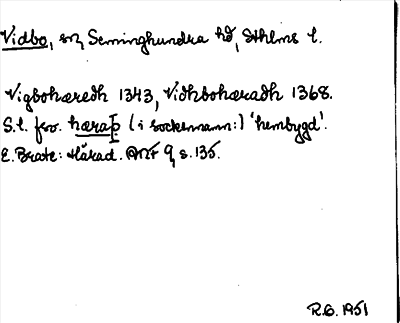 Vidbo, sn, Seminghundra hd, Sthlms l.
Vigbohæredh 1343, Vidhbohæradh 1368.
S.l. fsv. hæraþ (i sockennamn:) 'hembygd'.
E. Brate: Härad. ANF 9, s. 135.
R.O. 1951